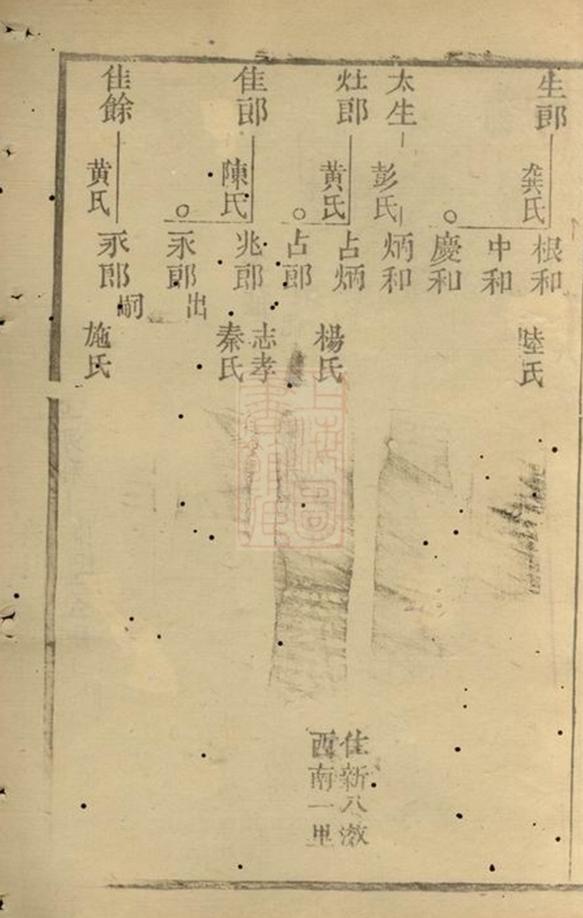 生郎
龔氏
根和
陸氏
中和
慶和
太生
彭氏
炳和
灶郎
黄氏
占炳
楊氏
占郎
住新八滧
西南一里
隹郎
陳氏
兆郎
志孝
秦氏
永郎
出
隹餘
黄氏
永郎
嗣
施氏